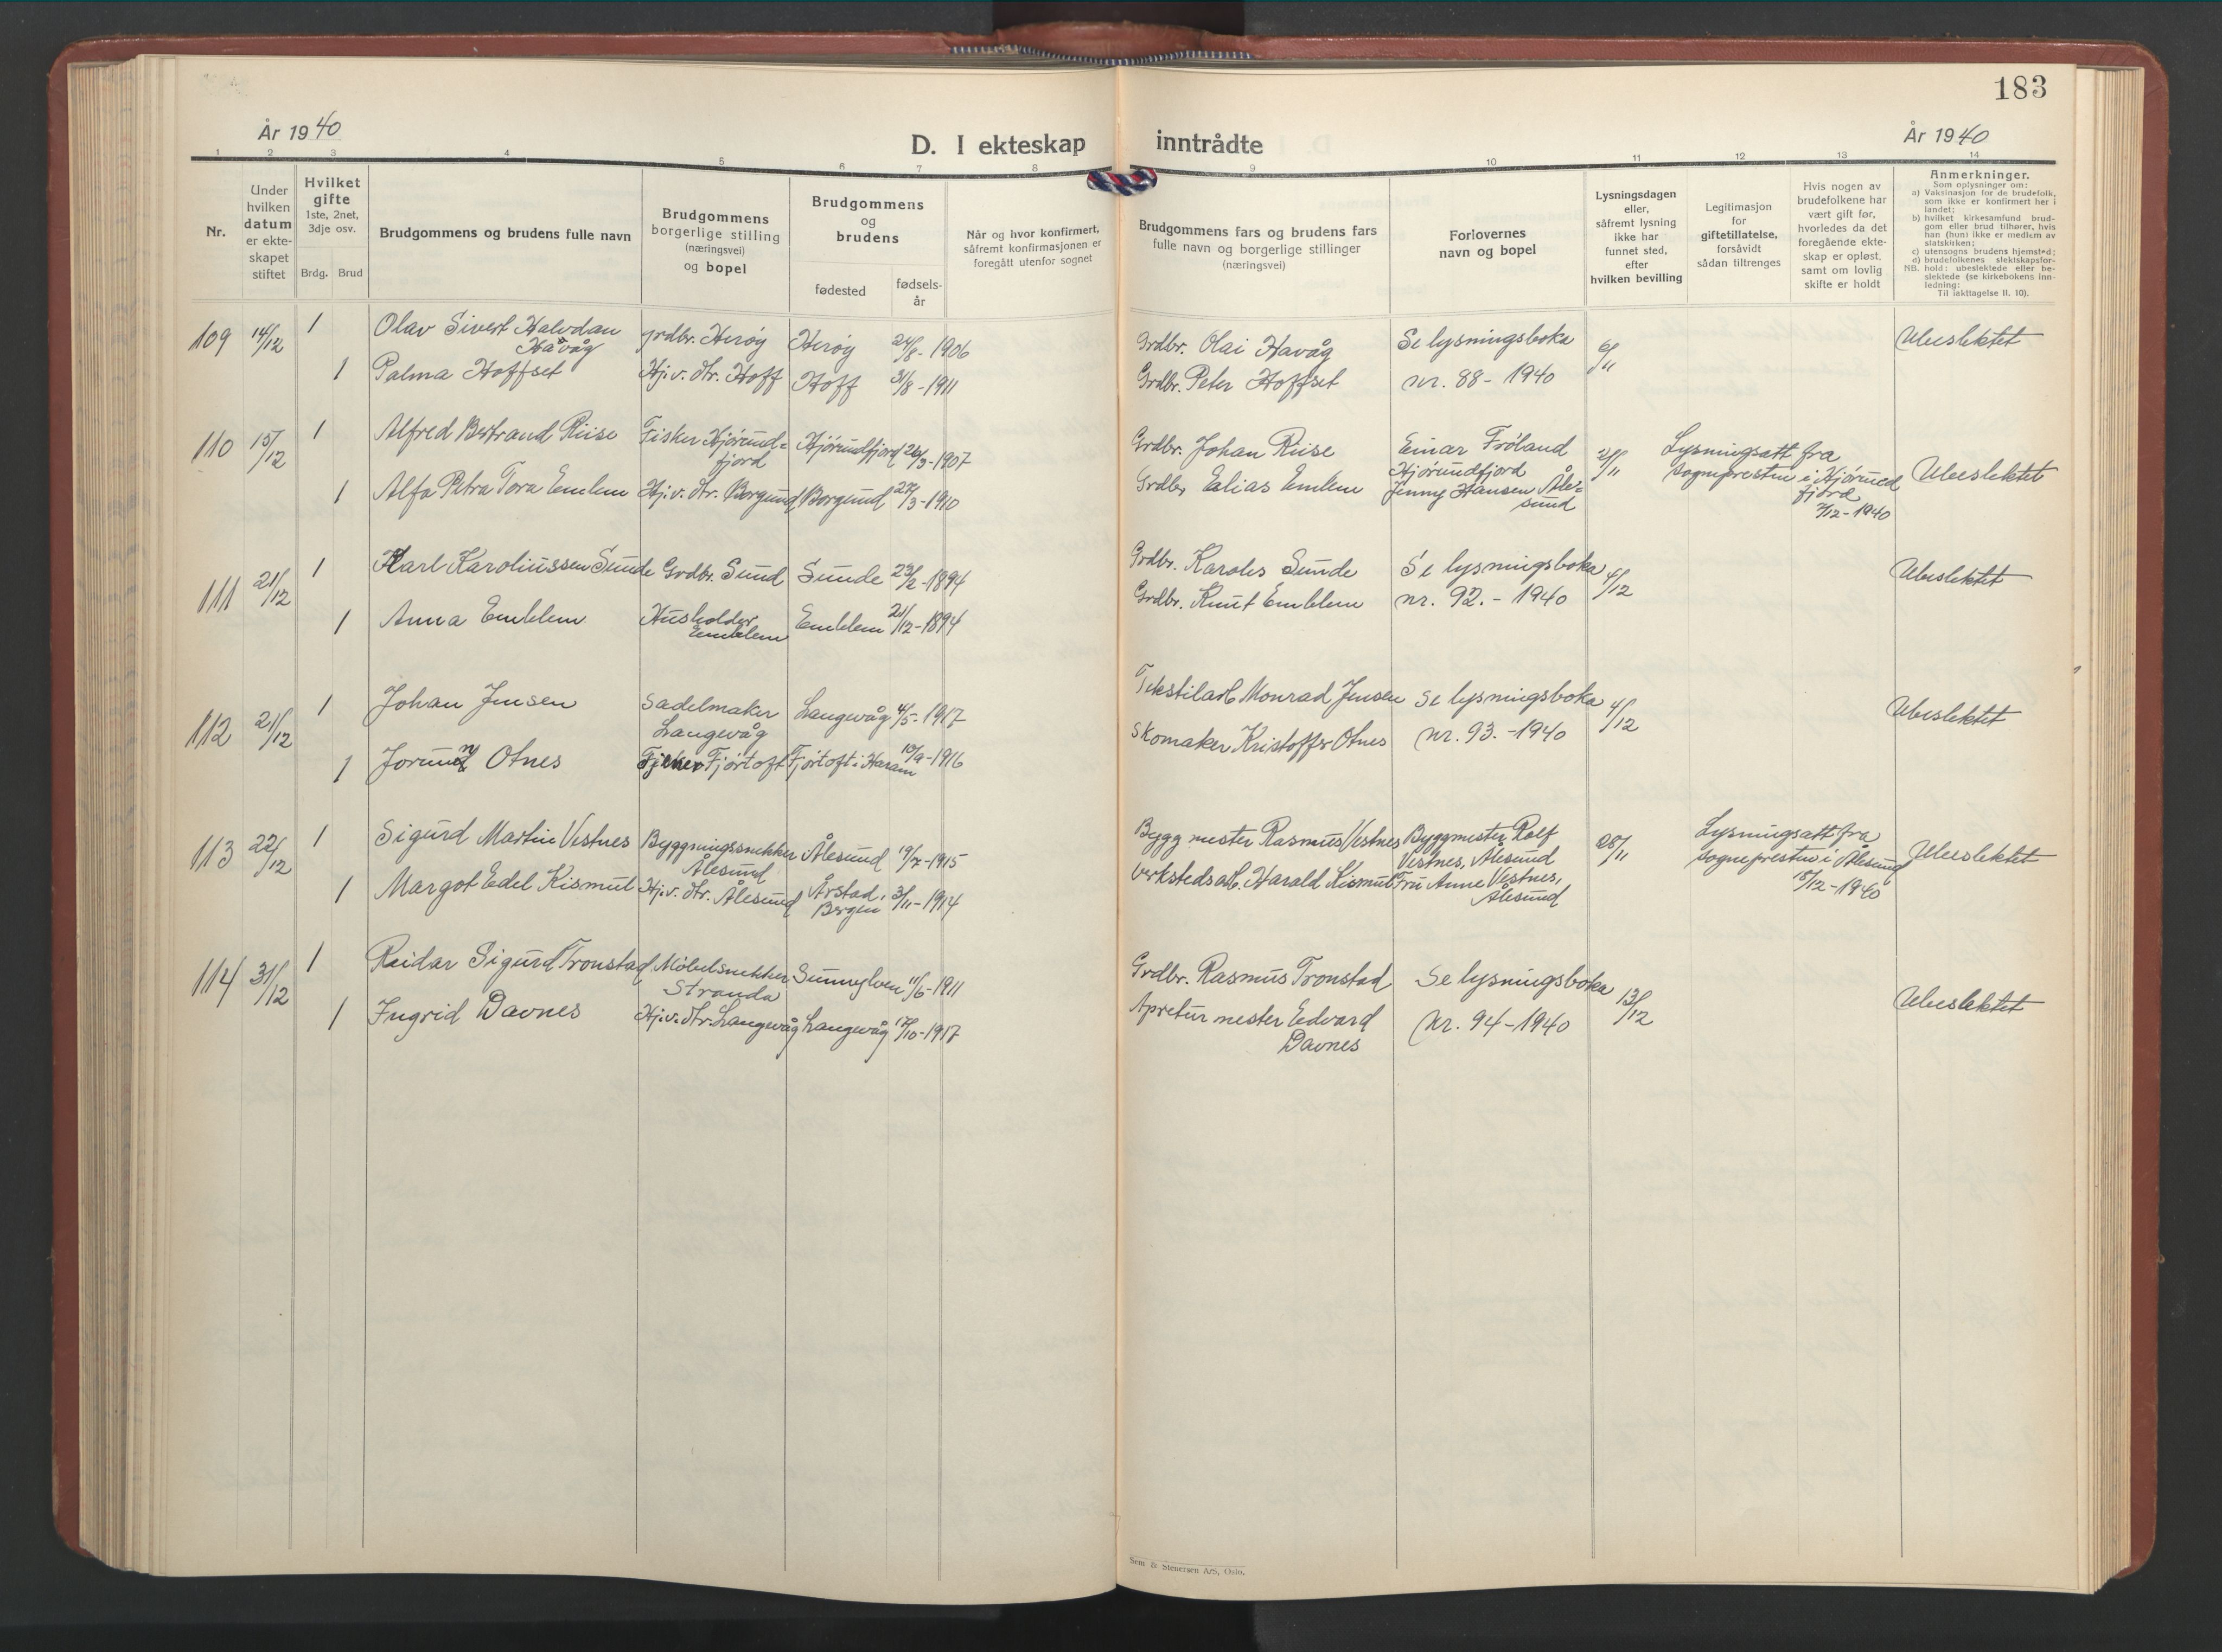 183
År 1940
D. I ekteskap inntrådte
År 1940
1 2 3 4 5 6 7 8 9 10 11 12 13 14
Nr.
Under
hvilken
datum
er ekte-
skapet
stiftet
Hvilket
gifte
1ste, 2net,
3dje osv.
Brdg. Brud
Brudgommens og brudens fulle navn
Brudgommens
borgerlige stilling
(næringsvei)
og bopel
Brudgommens
og
brudens
fødested
fødsels-
år
Når og hvor konfirmert,
såfremt konfirmasjonen er
foregått utenfor sognet
Brudgommens fars og brudens fars
fulle navn og borgerlige stillinger
(næringsvei)
Forlovernes
navn og bopel
Lysningsdagen
eller,
såfremt lysning
ikke har
funnet sted,
efter
hvilken bevilling
Legitimasjon
for
giftetillatelse,
forsåvidt
sådan tiltrenges
Hvis nogen av
brudefolkene har
vært gift før,
hvorledes da det
foregående ekte-
skap er opløst,
samt om lovlig
skifte er holdt
Anmerkninger.
Som oplysninger om:
a) Vaksinasjon for de brudefolk,
som ikke er konfirmert her i
landet;
b) hvilket kirkesamfund brud-
gom eller brud tilhører, hvis
han (hun) ikke er medlem av
statskirken;
c) utensogns brudens hjemsted;
d) brudefolkenes slektskapsfor-
NB. hold: ubeslektede eller be-
slektede (se kirkebokens inn-
ledning:
Til iakttagelse II. 10).
109 14/12 1 Olav Sivert Halvdan
Håvåg
grdbr. Herøy Herøy 24/8-1906 Grdbr. Olai Havåg Se lysningsboka 6/11 Ubeslektet
1 Palma Hoffset Hj.v. dtr. Hoff Hoff 31/8-1911 Grdbr. Peter Hoffset nr. 88-1940
110 15/12 1 Alfred Bertrand Riise Fisker Hjørund=
fjord
Hjørundfjord 26/3-1907 Grdbr. Johan Riise Einar Frøland
Hjørundfjord
Lysningsatt fra
sognepresten i Hjørund
fjord
7/12-1940
Ubeslektet
1 Alfa Petra Tora Emlem Hj.v. dtr. Borgund Borgund 27/3-1910 Grdbr Elias Emlem Jenny Hansen Åle=
sund
111 21/12 1 Karl Karoliussen Sunde Grdbr. Sund Sunde 23/2-1894 Grdbr. Karoles Sunde Se lysningsboka 4/12 Ubeslektet
1 Anna Emblem Husholder
Emblem
Emblem 21/12-1894 Grdbr. Knut Emblem nr. 92.-1940
112 21/12 1 Johan Jensen Sadelmaker
Langevåg
Langevåg 4/5-1917 Tekstilarb Monrad Jensen Se lysningsboka 4/12 Ubeslektet
1 Jorunn Otnes Fjørtoft Fjørtoft i Haram 10/9-1916 Skomaker Kristoffer Otnes nr. 93.-1940
113 22/12 1 Sigurd Martin Vestnes Byggningssnekker
Ålesund
Ålesund 19/7-1915 Bygg mester Rasmus Vestnes Byggmester Rolf
Vestnes, Ålesund
28/11 Lysningsatt fra
sognepresten i Ålesund
18/12-1940
Ubeslektet
1 Margot Edel Kismul Hj.v. dtr. Ålesund Årstad,
Bergen
3/11-1914 Verkstedsarb. Harald Kismul Fru Anne Vestnes,
Ålesund
114 31/12 1 Reidar Sigurd Tronstad Møbelsnekker
Stranda
Sunnylven 11/6-1911 Grdbr. Rasmus Tronstad Se lysningsboka 13/12 Ubeslektet
1 Ingrid Davnes Hj.v. dtr. Langevåg Langevåg 17/10-1917 Apretur mester Edvard
Davnes
Nr. 94-1940
Sem & Stenersen A/S, Oslo.